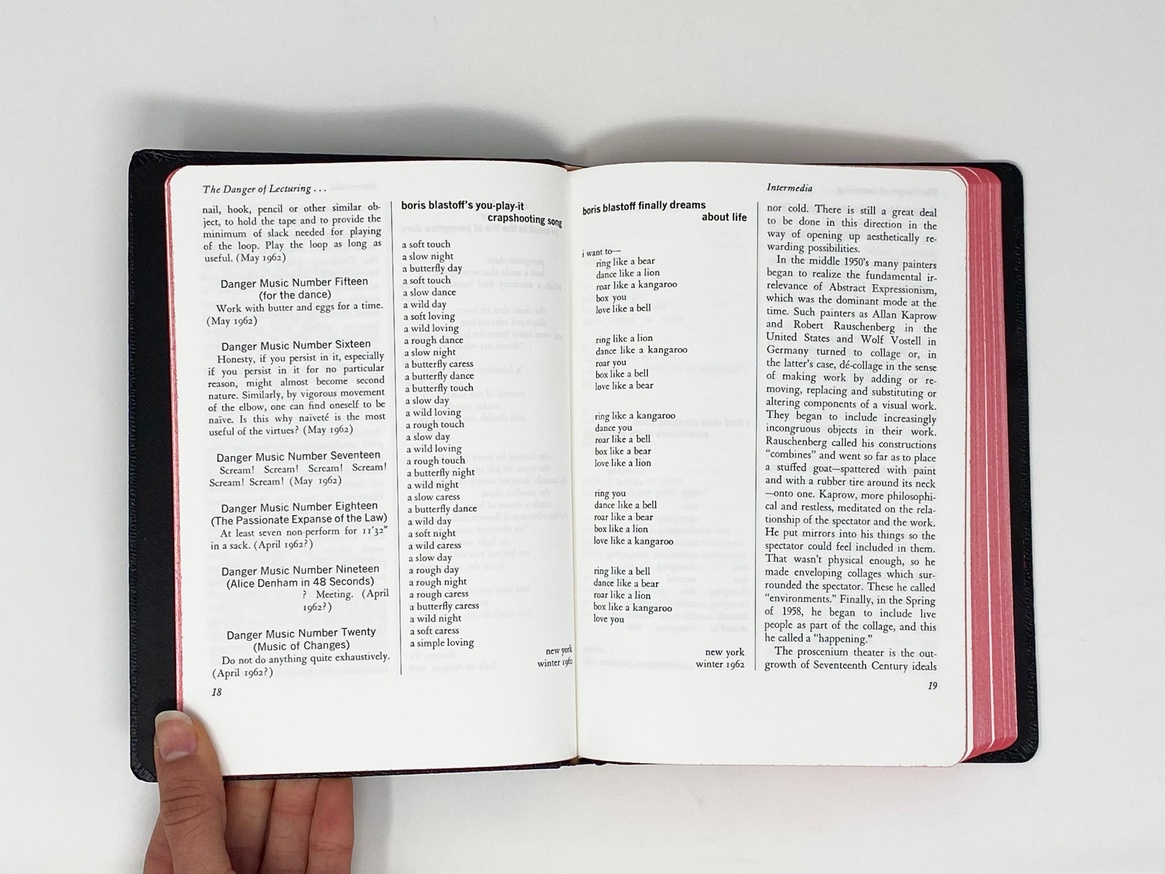 The Danger of Lecturing . . .
nail, hook, pencil or other similar ob-
ject, to hold the tape and to provide the
minimum of slack needed for playing
of the loop. Play the loop as long as
useful. (May 1962)
Danger Music Number Fifteen
(for the dance)
Work with butter and eggs for a time.
(May 1962)
Danger Music Number Sixteen
Honesty, if you persist in it, especially
if you persist in it for no particular
reason, might almost become second
nature. Similarly, by vigorous movement
of the elbow, one can find oneself to be
naïve. Is this why naïveté is the most
useful of the virtues? (May 1962)
Danger Music Number Seventeen
Scream! Scream! Scream! Scream!
Scream! Scream! (May 1962)
Danger Music Number Eighteen
(The Passionate Expanse of the Law)
At least seven non-perform for 11'32"
in a sack. (April 1962?)
Danger Music Number Nineteen
(Alice Denham in 48 Seconds)
? Meeting. (April
1962?)
Danger Music Number Twenty
(Music of Changes)
Do not do anything quite exhaustively.
(April 1962?)
18
boris blastoff's you-play-it
crapshooting song
a soft touch
a slow night
a butterfly day
a soft touch
a slow dance
a wild day
a soft loving
a wild loving
a rough dance
a slow night
a butterfly caress
a butterfly dance
a butterfly touch
a slow day
a wild loving
a rough touch
a slow day
a wild loving
a rough touch
a butterfly night
a wild night
a slow caress
a butterfly dance
a wild day
a soft night
a wild caress
a slow day
a rough day
a rough night
a rough caress
a butterfly caress
a wild night
a soft caress
a simple loving
new york
winter 1962
boris blastoff finally dreams
about life
i want to—
ring like a bear
dance like a lion
roar like a kangaroo
box you
love like a bell
ring like a lion
dance like a kangaroo
roar you
box like a bell
love like a bear
ring like a kangaroo
dance you
roar like a bell
box like a bear
love like a lion
ring you
dance like a bell
roar like a bear
box like a lion
love like a kangaroo
ring like a bell
dance like a bear
roar like a lion
box like a kangaroo
love you
new york
winter 1962
Intermedia
nor cold. There is still a great deal
to be done in this direction in the
way of opening up aesthetically re-
warding possibilities.
In the middle 1950's many painters
began to realize the fundamental ir-
relevance of Abstract Expressionism,
which was the dominant mode at the
time. Such painters as Allan Kaprow
and Robert Rauschenberg in the
United States and Wolf Vostell in
Germany turned to collage or, in
the latter's case, dé-collage in the sense
of making work by adding or re-
moving, replacing and substituting or
altering components of a visual work.
They began to include increasingly
incongruous objects in their work.
Rauschenberg called his constructions
"combines" and went so far as to place
a stuffed goat—spattered with paint
and with a rubber tire around its neck
—onto one. Kaprow, more philosophi-
cal and restless, meditated on the rela-
tionship of the spectator and the work.
He put mirrors into his things so the
spectator could feel included in them.
That wasn't physical enough, so he
made enveloping collages which sur-
rounded the spectator. These he called
"environments." Finally, in the Spring
of 1958, he began to include live
people as part of the collage, and this
he called a "happening."
The proscenium theater is the out-
growth of Seventeenth Century ideals
19